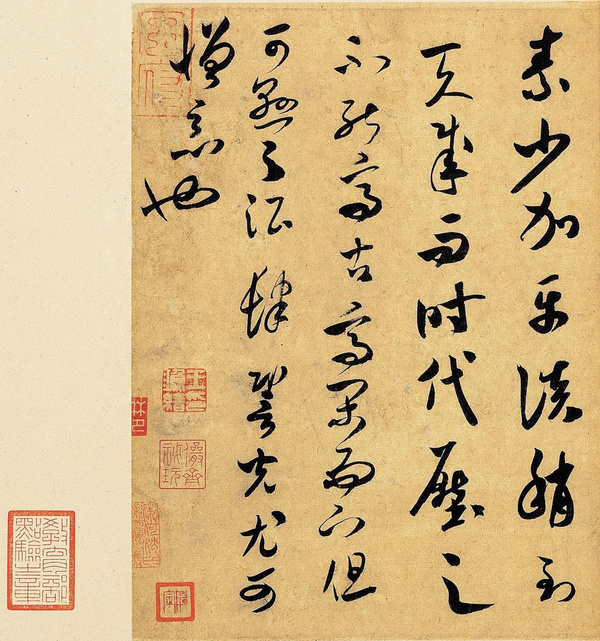 素少加平淡稍到
天成而時代壓之
不能高古高閑而下但
可懸之酒肆䛒光尤可
憎惡也